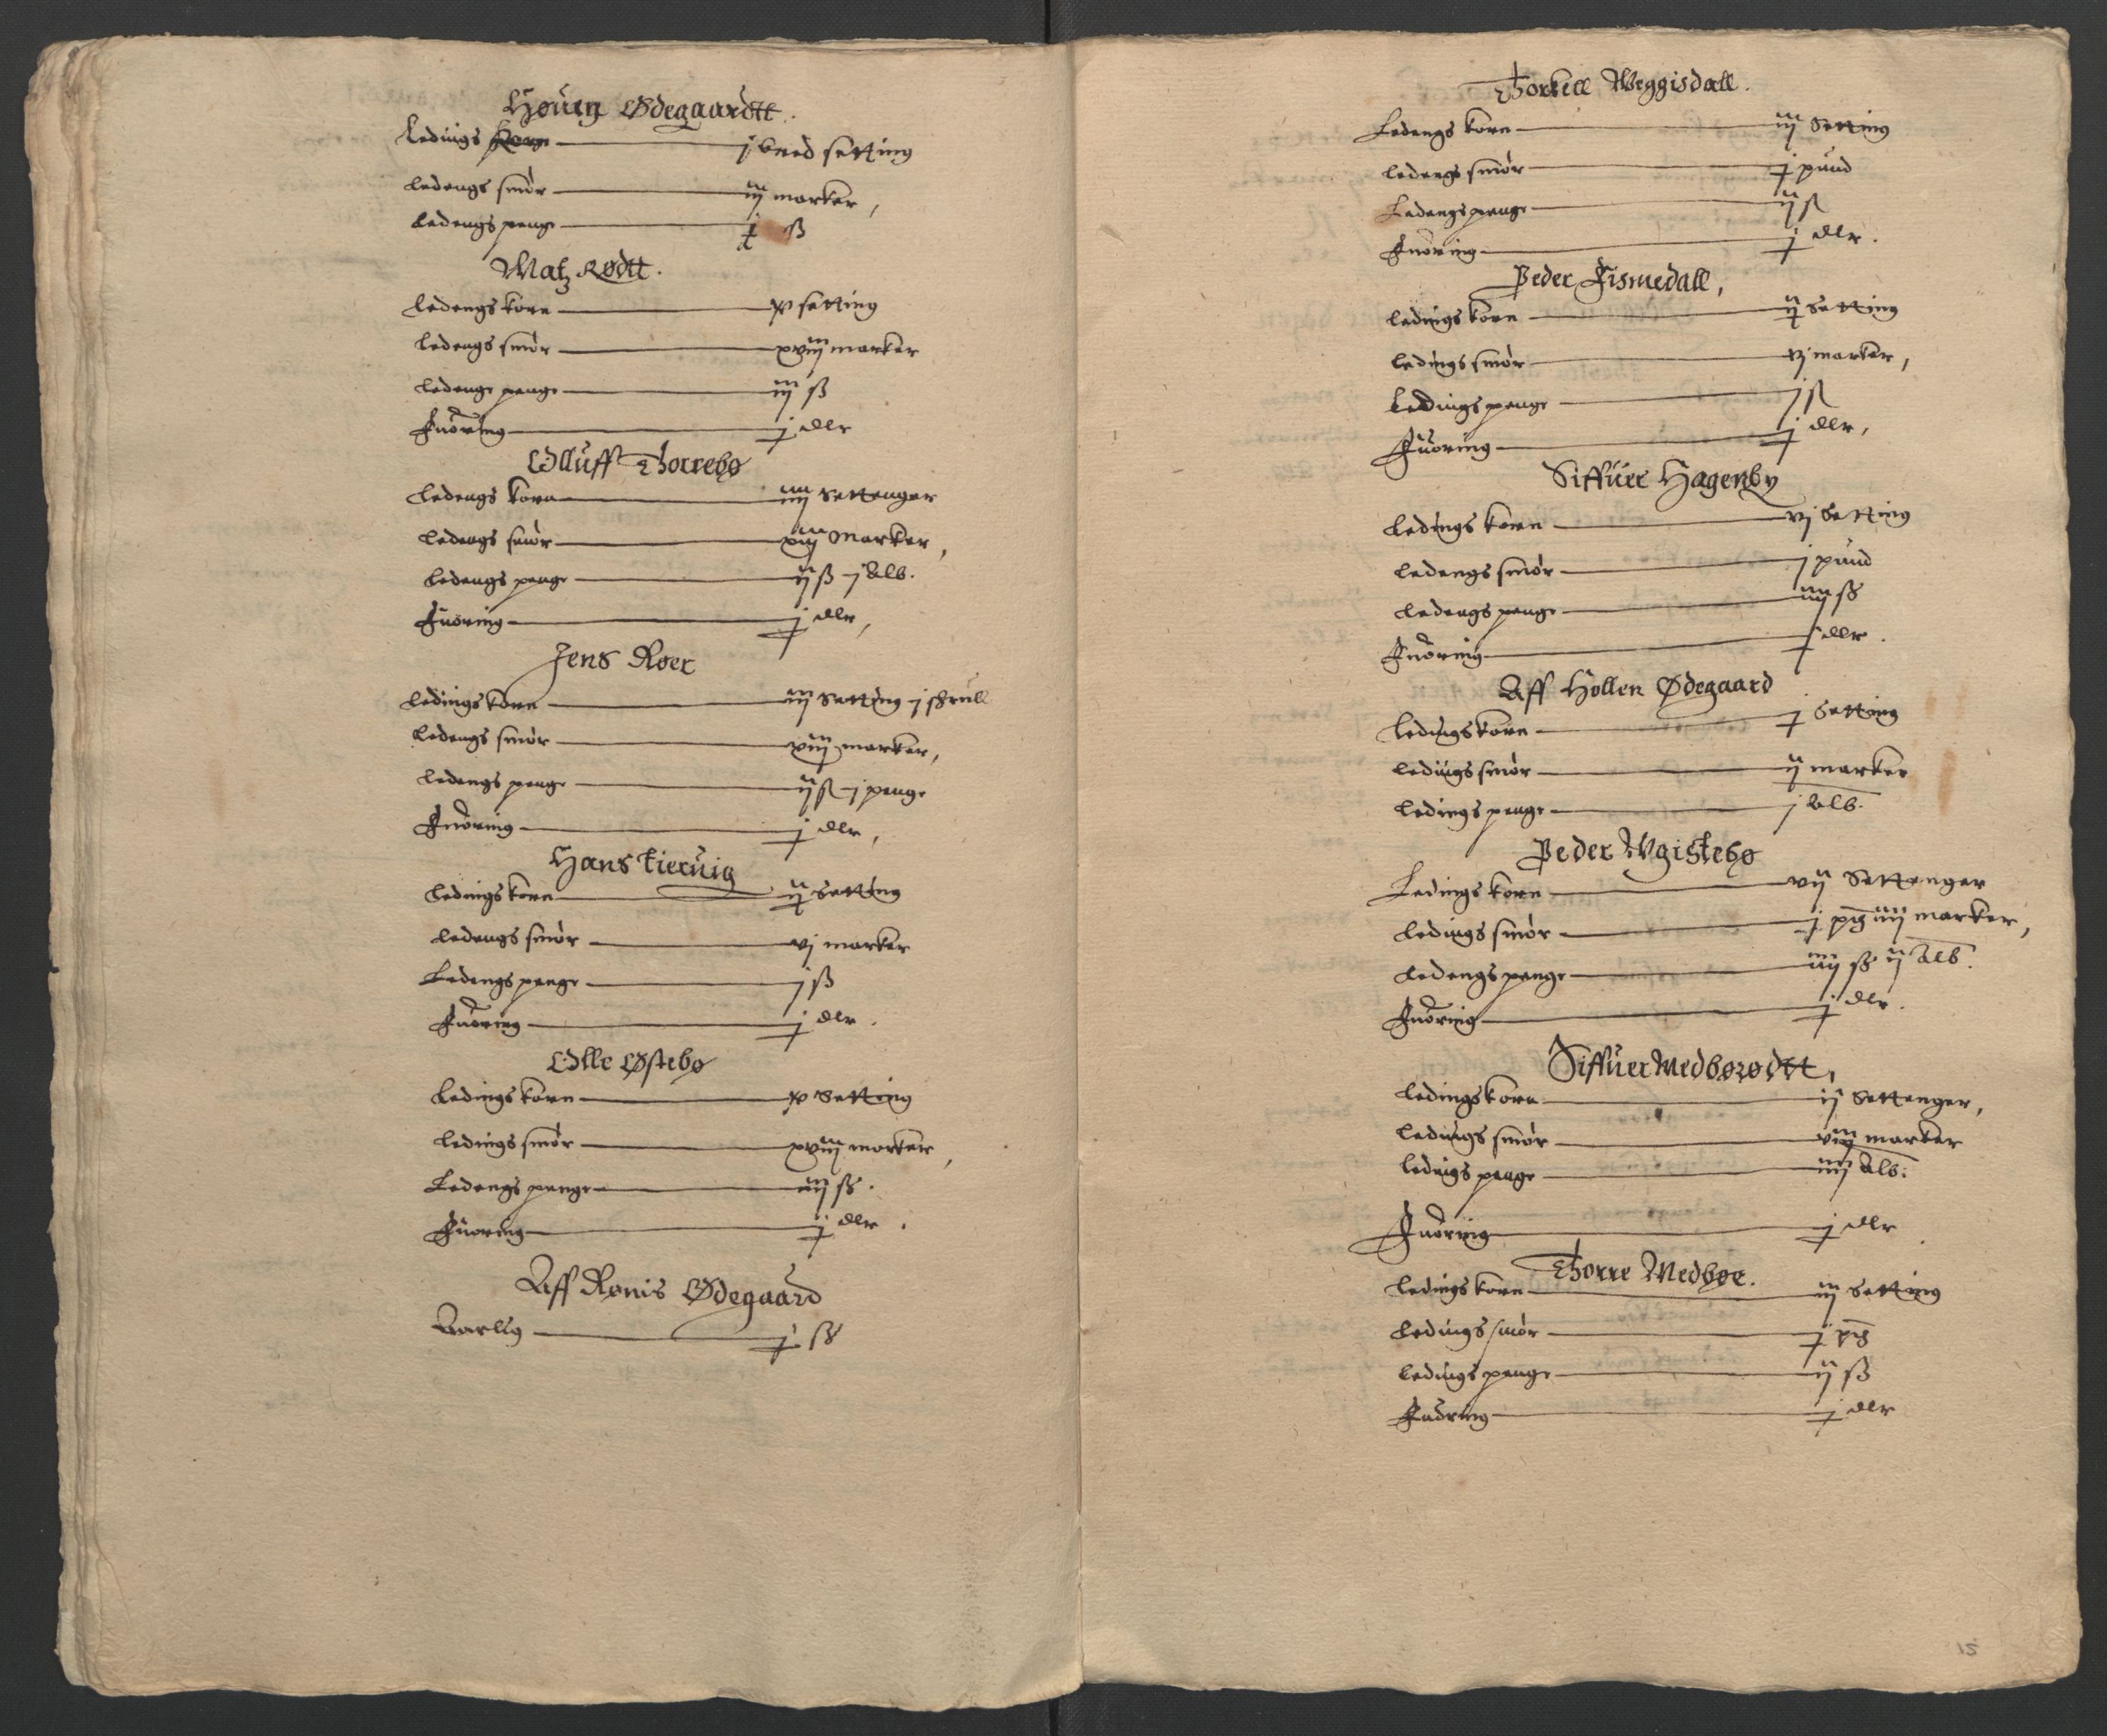 Høuig Ødegaardtt.
Ledings korn — j bred setting
ledengs smör — iij marker,
ledengs penge — j ß
Matz Rødtt.
ledengs korn — x setting
ledengs smör — xviij marker
ledenge penge — iij ß
Fuöring — j dlr
Olluff Thorrebø
ledengs korn — iiij settenger
ledengs smör — xiij marker,
ledengs penge — ij ß j Alb.
Fuöring — j dlr,
Jens Røer
ledings korn — iij setting j skrull
ledengs smör — viij marker,
ledengs penge — ij ß j penge
Fuöring — j dlr,
Hans Kieruig
ledings korn — ij setting
ledengs smör — vj marker
Ledengs penge — j ß
Fuöring — j dlr.
Olle Østebø
ledings korn — x setting
ledings smör — xviij marker,
Ledengs penge — iiij ß.
Fuöring — j dlr.
Aff Rønis Ødegaard
Aarlig — j ß
Thorkell Weggisdall.
Ledengs korn — iij setting
ledengs smör — j pund
Ledengs penge — ij ß
Fuöring — j dlr.
Peder Fismedall,
ledings korn — ij setting
ledings smör — vj marker,
ledings penge — j ß
Fuöring — j dlr,
Siffuer Hagenby
ledings korn — vj setting
ledengs smör — j pund
ledengs penge — iiij ß
Fuöring — j dlr.
Aff Hollen Ødegaard
ledings korn — j setting
ledings smör — ij marker
ledings penge — j Alb.
Peder Wgistebø
Ledings korn — vij settenger
ledings smör — j pd iiij marker,
ledengs penge — iiij ß ij Alb.
Fuöring — j dlr.
Siffuer Medbørødtt,
ledings korn — ij settenger,
ledings smör — viij marker
ledings penge — iiij Alb.
Fuöring — j dlr
Thorre Medbøe.
ledings korn — iij setting
ledings smör — j pd
ledings penge — ij ß
Fuöring — j dlr
15